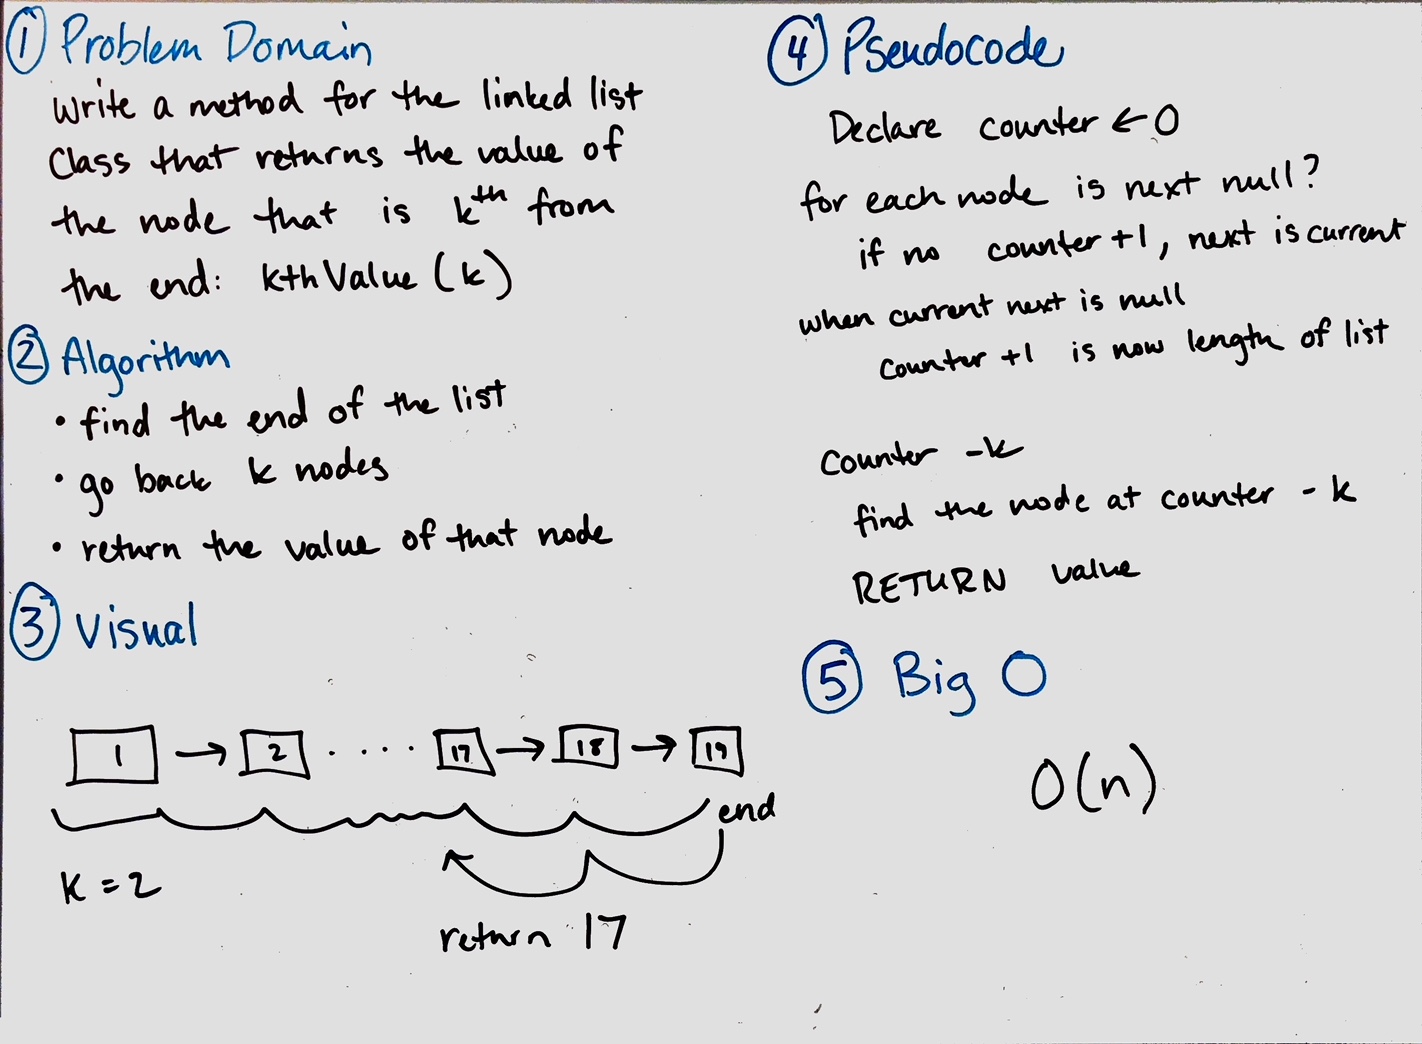 ① Problem Domain
Write a method for the linked list
Class that returns the value of
the node that is kth from
the end: kthValue (k)
② Algorithm
• find the end of the list
• go back k nodes
• return the value of that node
③ Visual
1 → 2 · · · · · 17 → 18 → 19
end
K = 2
return 17
④ Pseudocode
Declare counter ← 0
for each node is next null?
if no counter +1, next is current
when current next is null
counter +1 is now length of list
Counter -k
find the node at counter - k
RETURN value
⑤ Big O
O(n)